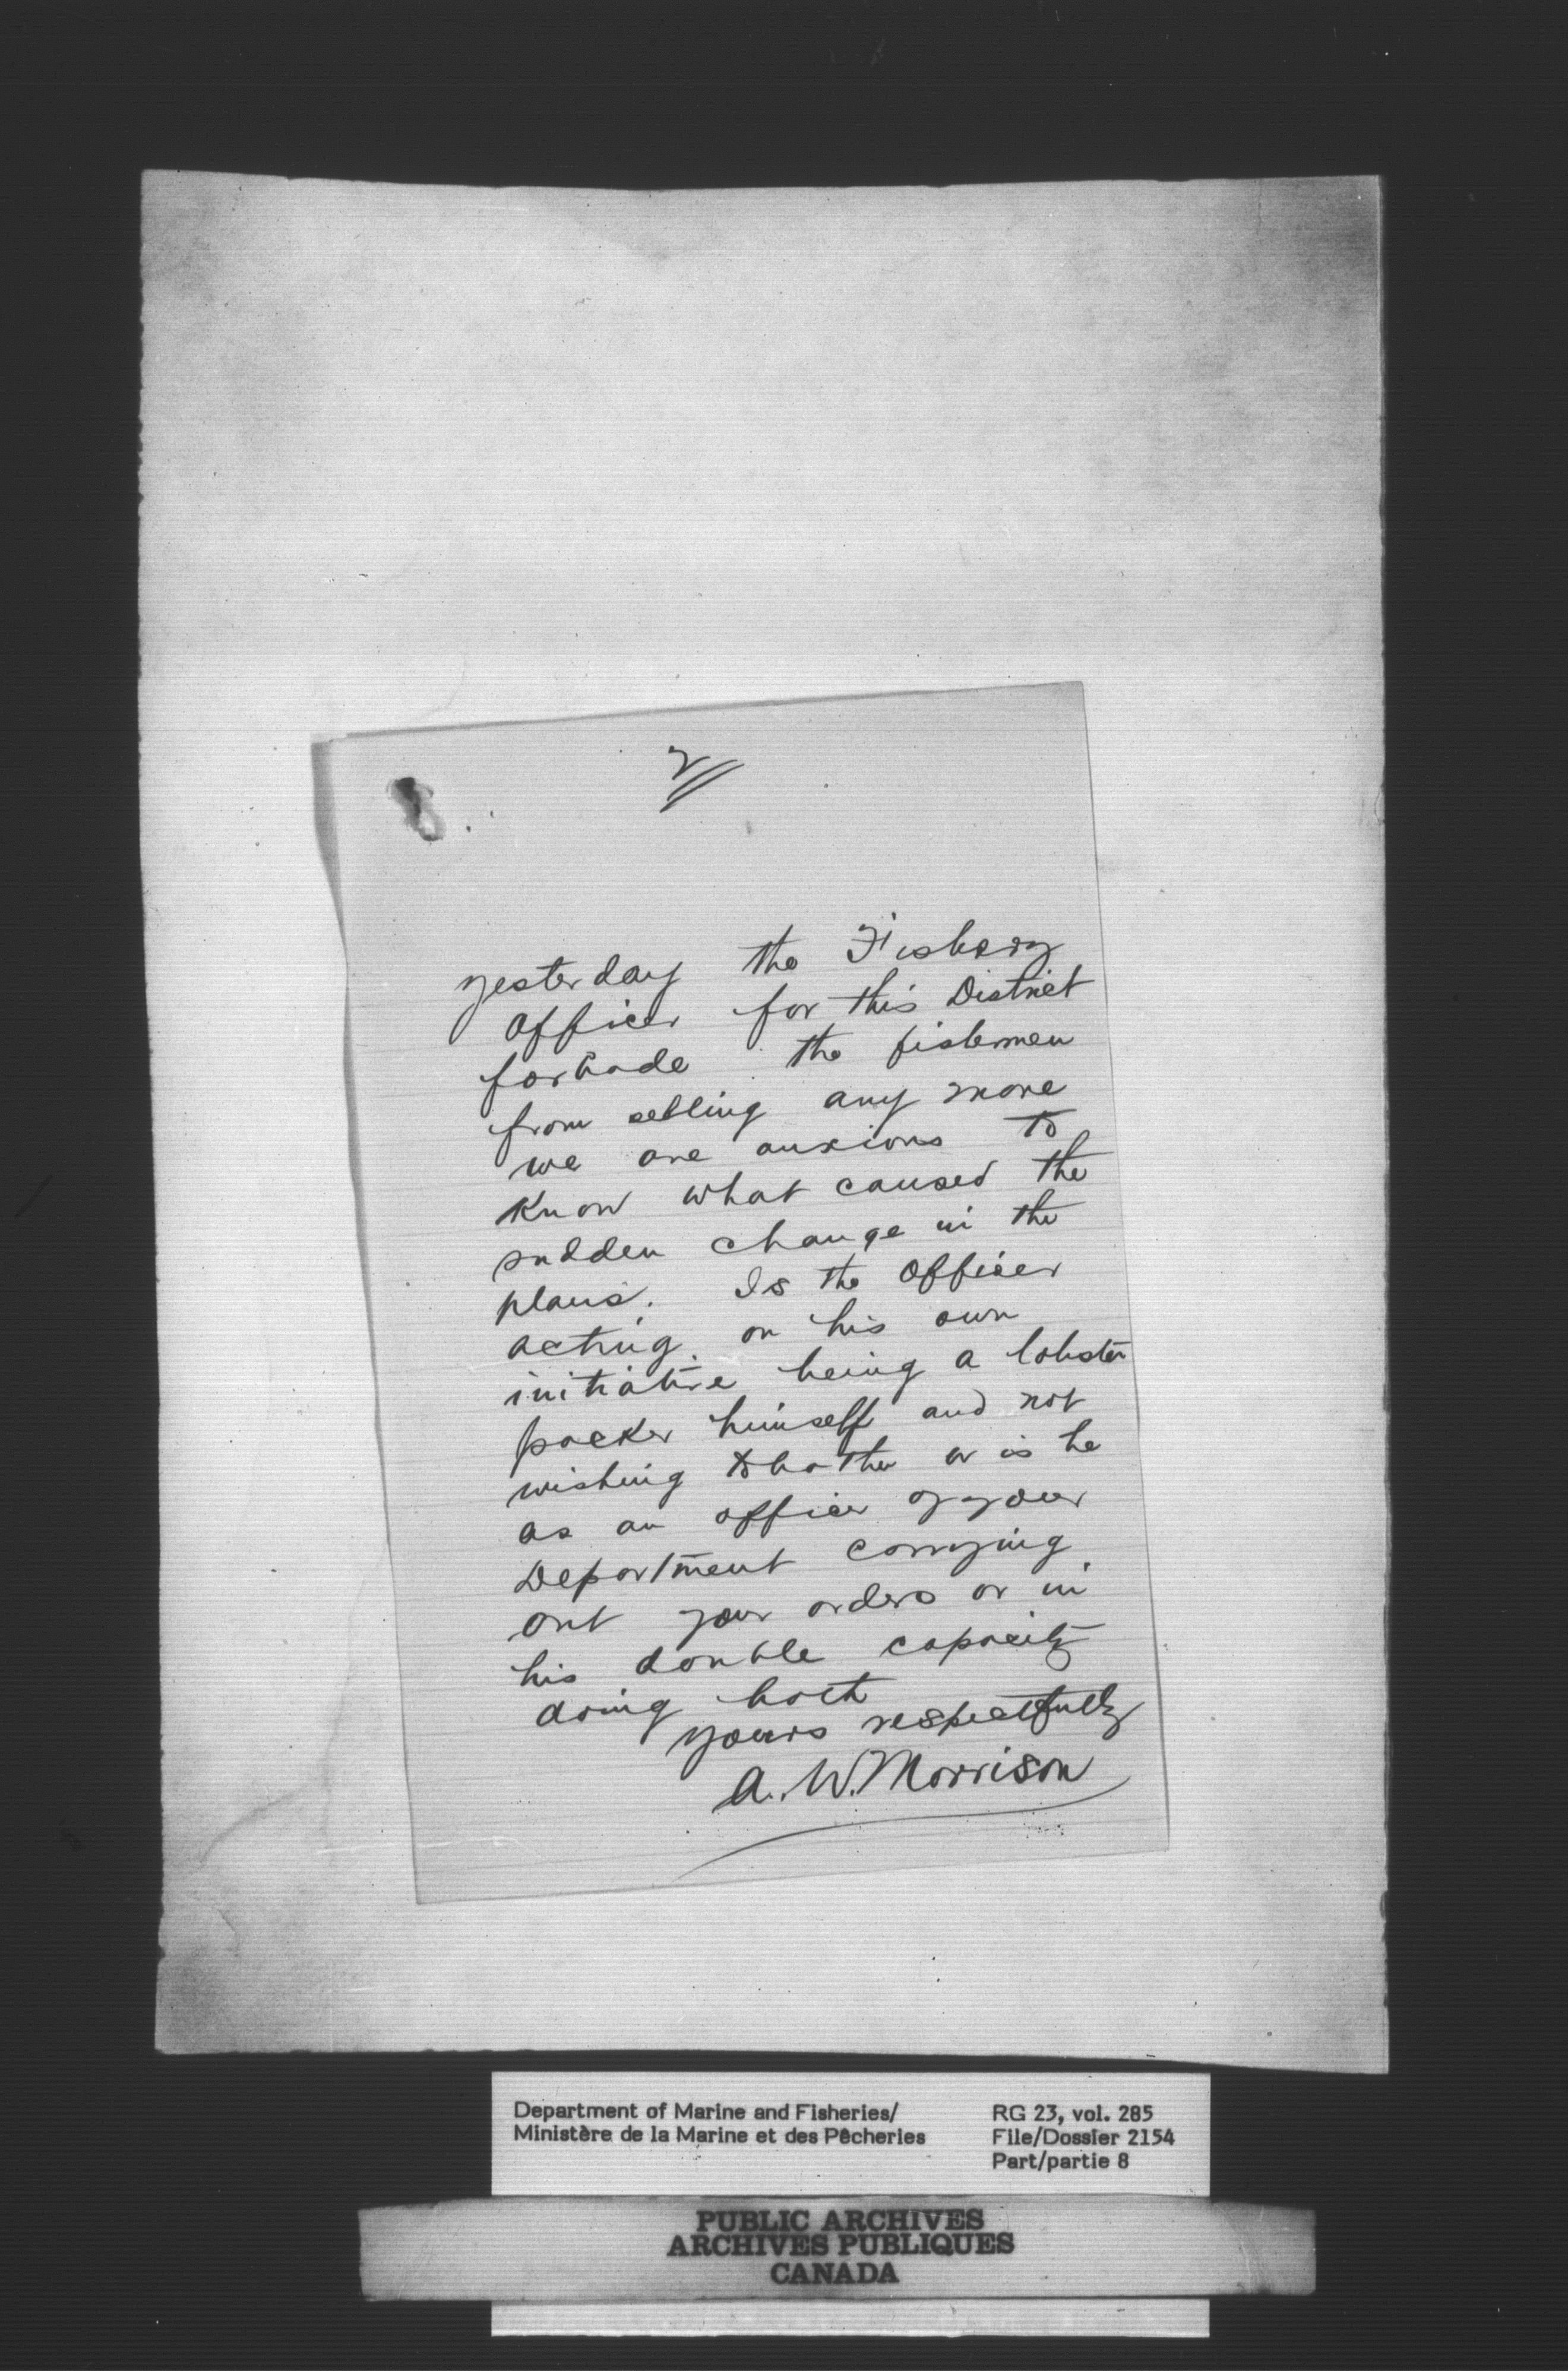 2
yesterday the Fishery
officer for this District
forbade the fishermen
from selling any more
we are anxious to
know what caused the
sudden change in the
plans. Is the officer
acting on his own
initiative being a lobster
packer himself and not
wishing to bother or is he
as an officer of your
Department carrying
out your orders or in
his double capacity
doing both
yours respectfully
A. W. Morrison
Department of Marine and Fisheries/
Ministère de la Marine et des Pêcheries
RG 23, vol. 285
File/Dossier 2154
Part/partie 8
PUBLIC ARCHIVES
ARCHIVES PUBLIQUES
CANADA